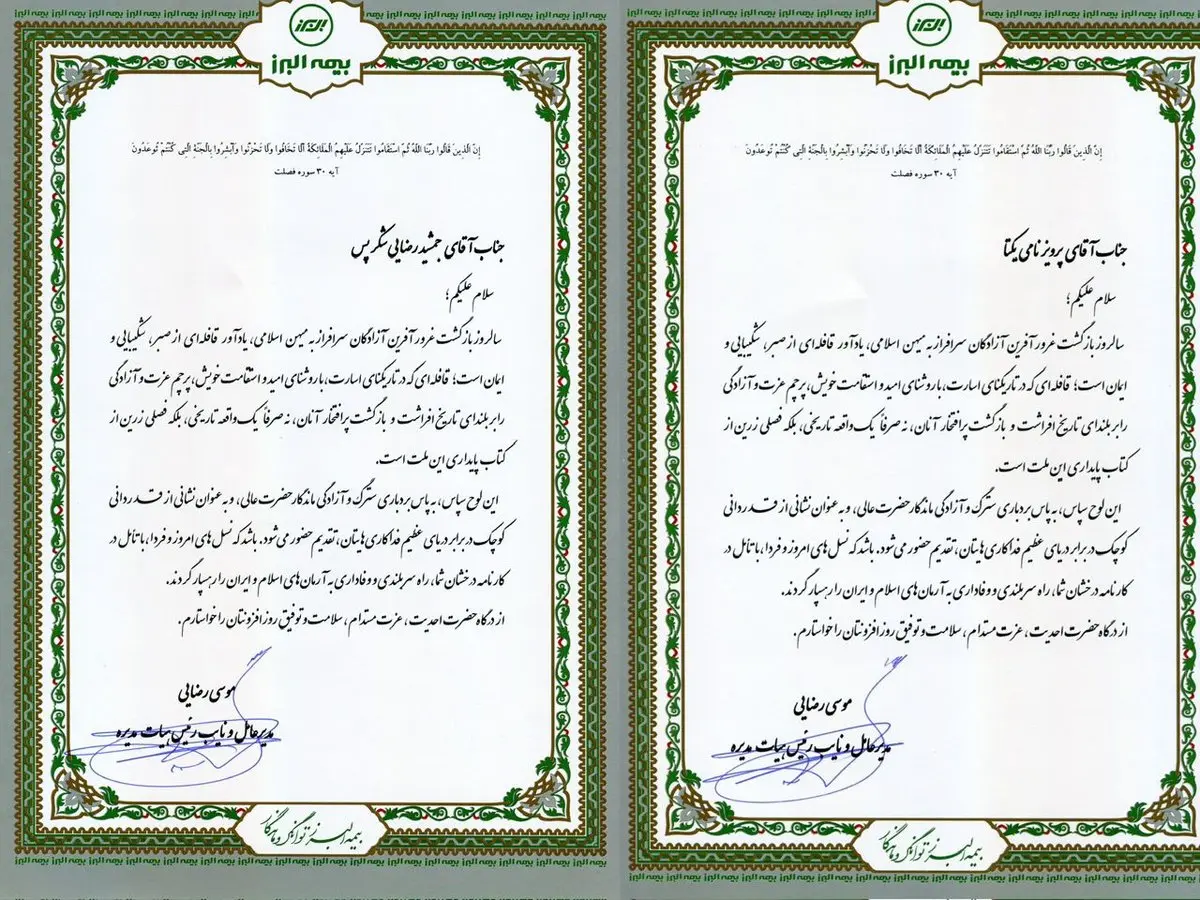 بیمه البرز
إِنَّ الَّذِينَ قَالُوا رَبُّنَا اللَّهُ ثُمَّ اسْتَقَامُوا تَتَنَزَّلُ عَلَيْهِمُ الْمَلَائِكَةُ أَلَّا تَخَافُوا وَلَا تَحْزَنُوا وَأَبْشِرُوا بِالْجَنَّةِ الَّتِي كُنْتُمْ تُوعَدُونَ
آیه ۳۰ سوره فصلت
جناب آقای پرویز نامی یکتا
سلام علیکم؛
سالروز بازگشت غرور آفرین آزادگان سرافراز به میهن اسلامی، یادآور قافله‌ای از صبر، شکیبایی و
ایمان است؛ قافله‌ای که در تاریکنای اسارت، با روشنای امید و استقامت خویش، پرچم عزت و آزادگی
را بر بلندای تاریخ افراشت و بازگشت پرافتخار آنان، نه صرفاً یک واقعه تاریخی، بلکه فصلی زرین از
کتاب پایداری این ملت است.
این لوح سپاس، به پاس بردباری سترگ و آزادگی ماندگار حضرت عالی، و به عنوان نشانی از قدردانی
کوچک در برابر دریای عظیم فداکاری هایتان، تقدیم حضور می‌شود. باشد که نسل های امروز و فردا، با تأمل در
کارنامه درخشان شما، راه سربلندی و وفاداری به آرمان های اسلام و ایران را رهسپار گردند.
از درگاه حضرت احدیت، عزت مستدام، سلامت و توفیق روز افزونتان را خواستارم.
موسی رضایی
مدیرعامل و نایب رئیس هیات مدیره
بیمه البرز توانگر و ماندگار
بیمه البرز
إِنَّ الَّذِينَ قَالُوا رَبُّنَا اللَّهُ ثُمَّ اسْتَقَامُوا تَتَنَزَّلُ عَلَيْهِمُ الْمَلَائِكَةُ أَلَّا تَخَافُوا وَلَا تَحْزَنُوا وَأَبْشِرُوا بِالْجَنَّةِ الَّتِي كُنْتُمْ تُوعَدُونَ
آیه ۳۰ سوره فصلت
جناب آقای جمشید رضایی شگرپس
سلام علیکم؛
سالروز بازگشت غرور آفرین آزادگان سرافراز به میهن اسلامی، یادآور قافله‌ای از صبر، شکیبایی و
ایمان است؛ قافله‌ای که در تاریکنای اسارت، با روشنای امید و استقامت خویش، پرچم عزت و آزادگی
را بر بلندای تاریخ افراشت و بازگشت پرافتخار آنان، نه صرفاً یک واقعه تاریخی، بلکه فصلی زرین از
کتاب پایداری این ملت است.
این لوح سپاس، به پاس بردباری سترگ و آزادگی ماندگار حضرت عالی، و به عنوان نشانی از قدردانی
کوچک در برابر دریای عظیم فداکاری هایتان، تقدیم حضور می‌شود. باشد که نسل های امروز و فردا، با تأمل در
کارنامه درخشان شما، راه سربلندی و وفاداری به آرمان های اسلام و ایران را رهسپار گردند.
از درگاه حضرت احدیت، عزت مستدام، سلامت و توفیق روز افزونتان را خواستارم.
موسی رضایی
مدیرعامل و نایب رئیس هیات مدیره
بیمه البرز توانگر و ماندگار